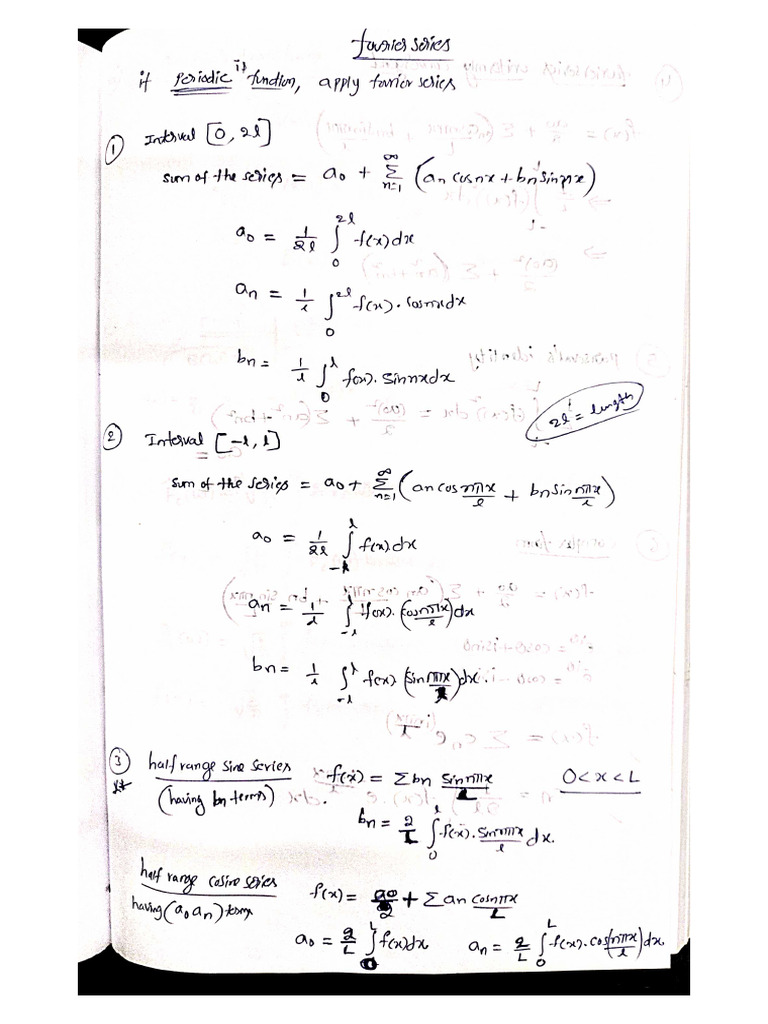 Fourier series
if periodic is function, apply fourier series
① Interval [0, 2l]
sum of the series = a₀ + ∑ₙ₌₁^∞ (an cosnx + bn sinnx)
a₀ = 1/2l ∫₀^2l f(x)dx
an = 1/l ∫₀^2l f(x). cosnxdx
bn = 1/l ∫₀^l f(x). sinnxdx
2l = length
② Interval [-l, l]
sum of the series = a₀ + ∑ₙ₌₁^∞ (an cos nπx/l + bn sin nπx/l)
a₀ = 1/2l ∫₋ₗ^l f(x).dx
an = 1/l ∫₋ₗ^l f(x). (cos nπx/l)dx
bn = 1/l ∫₋ₗ^l f(x) (sin nπx/l)dx.
③ half range sine series f(x) = ∑bn sin nπx/L 0<x<L
(having bn terms). bn = 2/L ∫₀^l f(x). sin nπx/l dx.
half range cosine series f(x) = a₀/2 + ∑an cos nπx/L
having (a₀ an) terms
a₀ = 2/L ∫₀^L f(x)dx an = 2/L ∫₀^L f(x). cos(nπx/l)dx